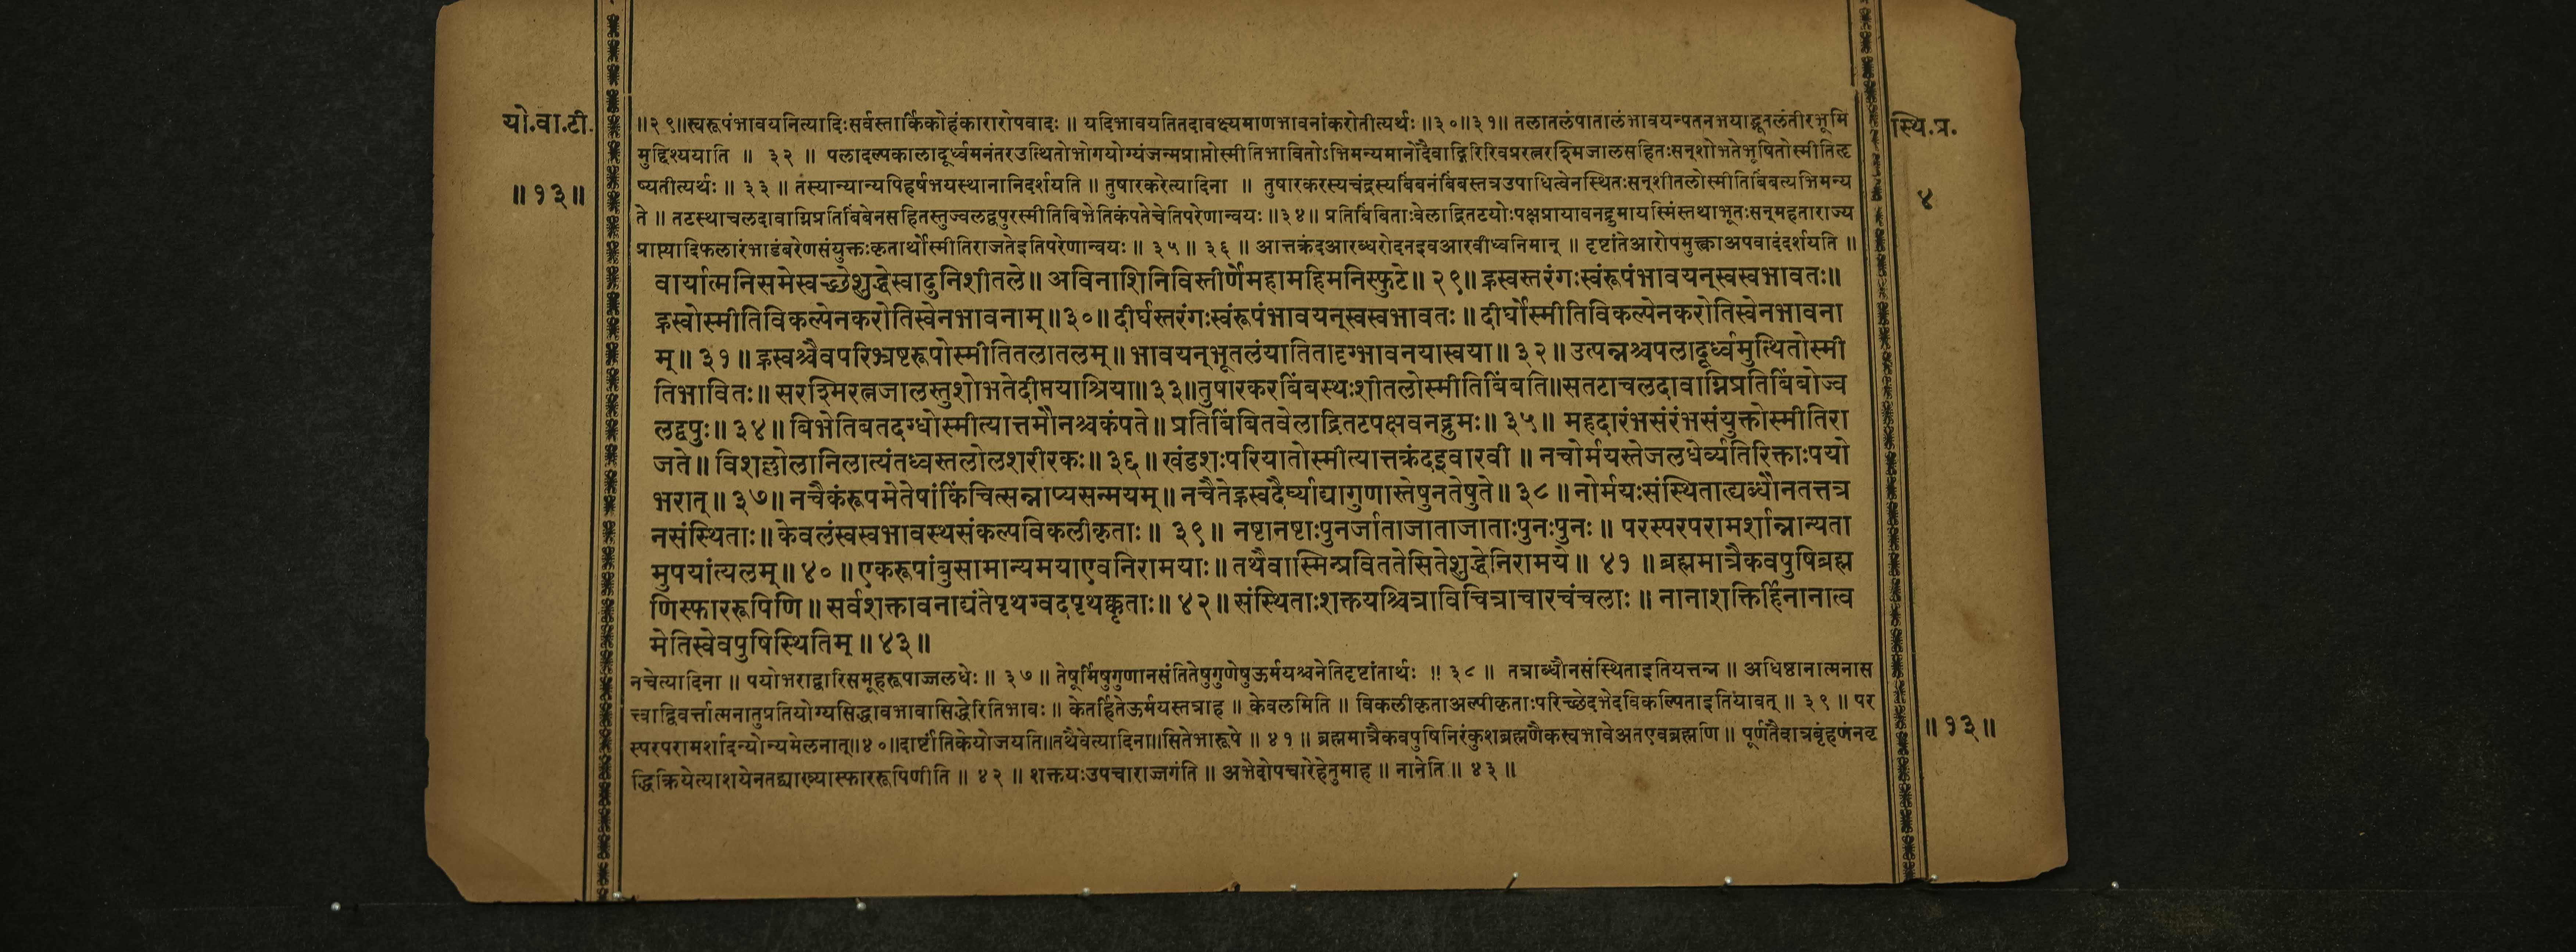 यो.वा.टी.
॥१३॥
॥२९॥स्वरूपंभावयनित्यादिःसर्वस्तार्किकोहंकारारोपवादः ॥ यदिभावयतितदावक्ष्यमाणभावनांकरोतीत्यर्थः ॥३०॥३१॥ तलातलंपातालंभावयन्पतनभयाद्भूतलंतीरभूमि
मुद्दिश्ययाति ॥ ३२ ॥ पलादल्पकालादूर्ध्वमनंतरउत्थितोभोगयोग्यंजन्मप्राप्तोस्मीतिभावितोऽभिमन्यमानोदैवाद्गिरिरिवप्ररत्नरश्मिजालसहितःसन्शोभतेभूषितोस्मीतिहृ
ष्यतीत्यर्थः ॥ ३३ ॥ तस्यान्यान्यपिहर्षभयस्थानानिदर्शयति ॥ तुषारकरेत्यादिना ॥ तुषारकरस्यचंद्रस्यबिंबनंबिंबस्तत्रउपाधित्वेनस्थितःसन्शीतलोस्मीतिबिंबत्यभिमन्य
ते ॥ तटस्थाचलदावाग्निप्रतिबिंबेनसहितस्तुज्वलद्वपुरस्मीतिबिभेतिकंपतेचेतिपरेणान्वयः ॥३४॥ प्रतिबिंबिताःवेलाद्रितटयोःपक्षप्रायावनद्रुमायस्मिंस्तथाभूतःसन्महताराज्य
प्राप्त्यादिफलारंभाडंबरेणसंयुक्तःकृतार्थोस्मीतिराजतेइतिपरेणान्वयः ॥ ३५ ॥ ३६ ॥ आत्तक्रंदआरब्धरोदनइवआरवीध्वनिमान् ॥ दृष्टांतेआरोपमुक्त्वाअपवादंदर्शयति ॥
वार्यात्मनिसमेस्वच्छेशुद्धेस्वादुनिशीतले॥ अविनाशिनिविस्तीर्णेमहामहिमनिस्फुटे॥ २९॥ ह्रस्वस्तरंगःस्वंरूपंभावयन्स्वस्वभावतः॥
ह्रस्वोस्मीतिविकल्पेनकरोतिस्वेनभावनाम्॥३०॥ दीर्घस्तरंगःस्वंरूपंभावयन्स्वस्वभावतः॥ दीर्घोस्मीतिविकल्पेनकरोतिस्वेनभावना
म्॥ ३१॥ ह्रस्वश्चैवपरिभ्रष्टरूपोस्मीतितलातलम्॥ भावयन्भूतलंयातितादृग्भावनयास्वया॥ ३२॥ उत्पन्नश्चपलादूर्ध्वमुत्थितोस्मी
तिभावितः॥ सरश्मिरत्नजालस्तुशोभतेदीप्तयाश्रिया॥३३॥तुषारकरबिंबस्थःशीतलोस्मीतिबिंबति॥सतटाचलदावाग्निप्रतिबिंबोज्व
लद्वपुः॥ ३४॥ बिभेतिबतदग्धोस्मीत्यात्तमौनश्चकंपते॥ प्रतिबिंबितवेलाद्रितटपक्षवनद्रुमः॥ ३५॥ महदारंभसंरंभसंयुक्तोस्मीतिरा
जते॥ विशल्लोलानिलात्यंतध्वस्तलोलशरीरकः॥ ३६॥ खंडशःपरियातोस्मीत्यात्तक्रंदइवारवी ॥ नचोर्मयस्तेजलधेर्व्यतिरिक्ताःपयो
भरात्॥ ३७॥ नचैकंरूपमेतेषांकिंचित्सन्नाप्यसन्मयम्॥ नचैतेह्रस्वदैर्घ्याद्यागुणास्तेषुनतेषुते॥ ३८॥ नोर्मयःसंस्थितात्यब्धौनतत्तत्र
नसंस्थिताः॥ केवलंस्वस्वभावस्थसंकल्पविकलीकृताः॥ ३९॥ नष्टानष्टाःपुनर्जाताजाताजाताःपुनःपुनः॥ परस्परपरामर्शान्नान्यता
मुपयांत्यलम्॥ ४०॥ एकरूपांबुसामान्यमयाएवनिरामयाः॥ तथैवास्मिन्प्रविततेसितेशुद्धेनिरामये॥ ४१॥ ब्रह्ममात्रैकवपुषिब्रह्म
णिस्फाररूपिणि॥ सर्वशक्तावनाद्यंतेपृथग्वदपृथक्कृताः॥ ४२॥ संस्थिताःशक्तयश्चित्राविचित्राचारचंचलाः॥ नानाशक्तिर्हिनानात्व
मेतिस्वेवपुषिस्थितिम्॥ ४३॥
नचेत्यादिना ॥ पयोभराद्वारिसमूहरूपाज्जलधेः ॥ ३७ ॥ तेषूर्मिषुगुणानसंतितेषुगुणेषुऊर्मयश्चनेतिदृष्टांतार्थः ॥ ३८ ॥ तत्राब्धौनसंस्थिताइतियत्तन्न ॥ अधिष्ठानात्मनास
त्त्वाद्विवर्त्तात्मनातुप्रतियोग्यसिद्धावभावासिद्धेरितिभावः ॥ केतर्हितेऊर्मयस्तत्राह ॥ केवलमिति ॥ विकलीकृताअल्पीकृताःपरिच्छेदभेदविकल्पिताइतियावत् ॥ ३९ ॥ पर
स्परपरामर्शादन्योन्यमेलनात्॥४०॥दार्ष्टांतिकेयोजयति॥तथैवेत्यादिना॥सितेभारूपे ॥ ४१ ॥ ब्रह्ममात्रैकवपुषिनिरंकुशब्रह्मणैकस्वभावेअतएवब्रह्मणि ॥ पूर्णतैवात्रबृंहणंनवृ
द्धिक्रियेत्याशयेनतद्व्याख्यास्फाररूपिणीति ॥ ४२ ॥ शक्तयःउपचाराज्जगंति ॥ अभेदोपचारेहेतुमाह ॥ नानेति ॥ ४३ ॥
स्थि.प्र.
४
॥१३॥